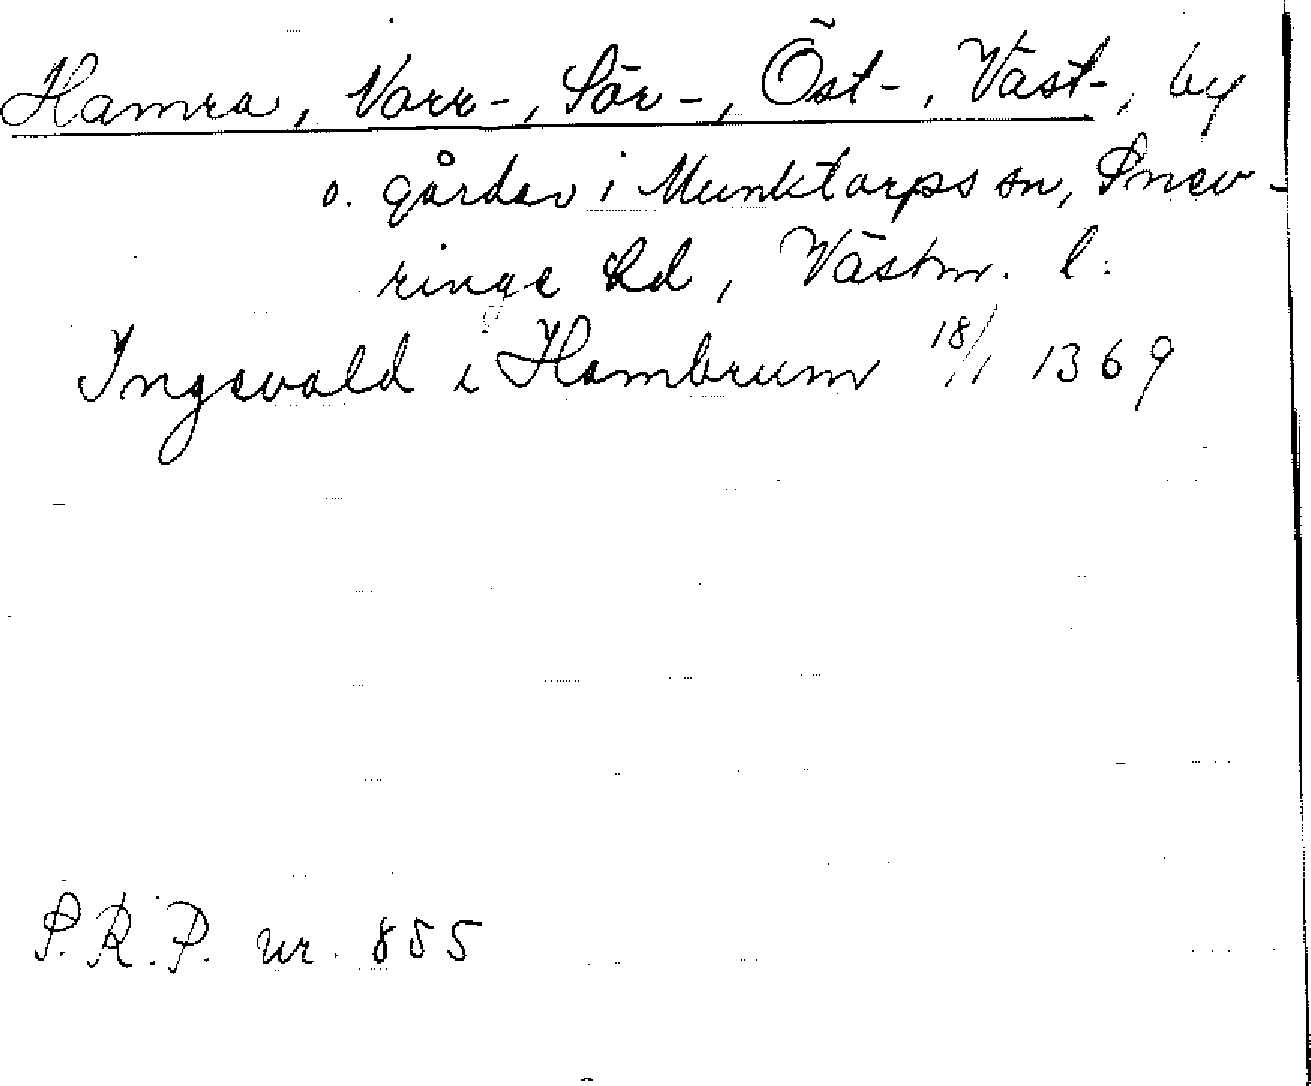 Hamra, Norr-, Sör-, Öst-, Väst-, by
o. gårdar i Munktorps sn, Snev-
ringe hd, Västm. l:
Ingevald i Hambrum 18/1 1369
S.R.P. nr. 855